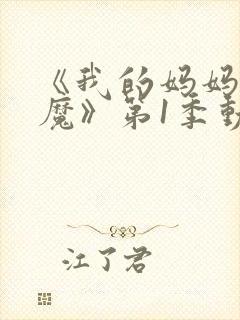 《我的妈妈
魔》第1季動
江了君